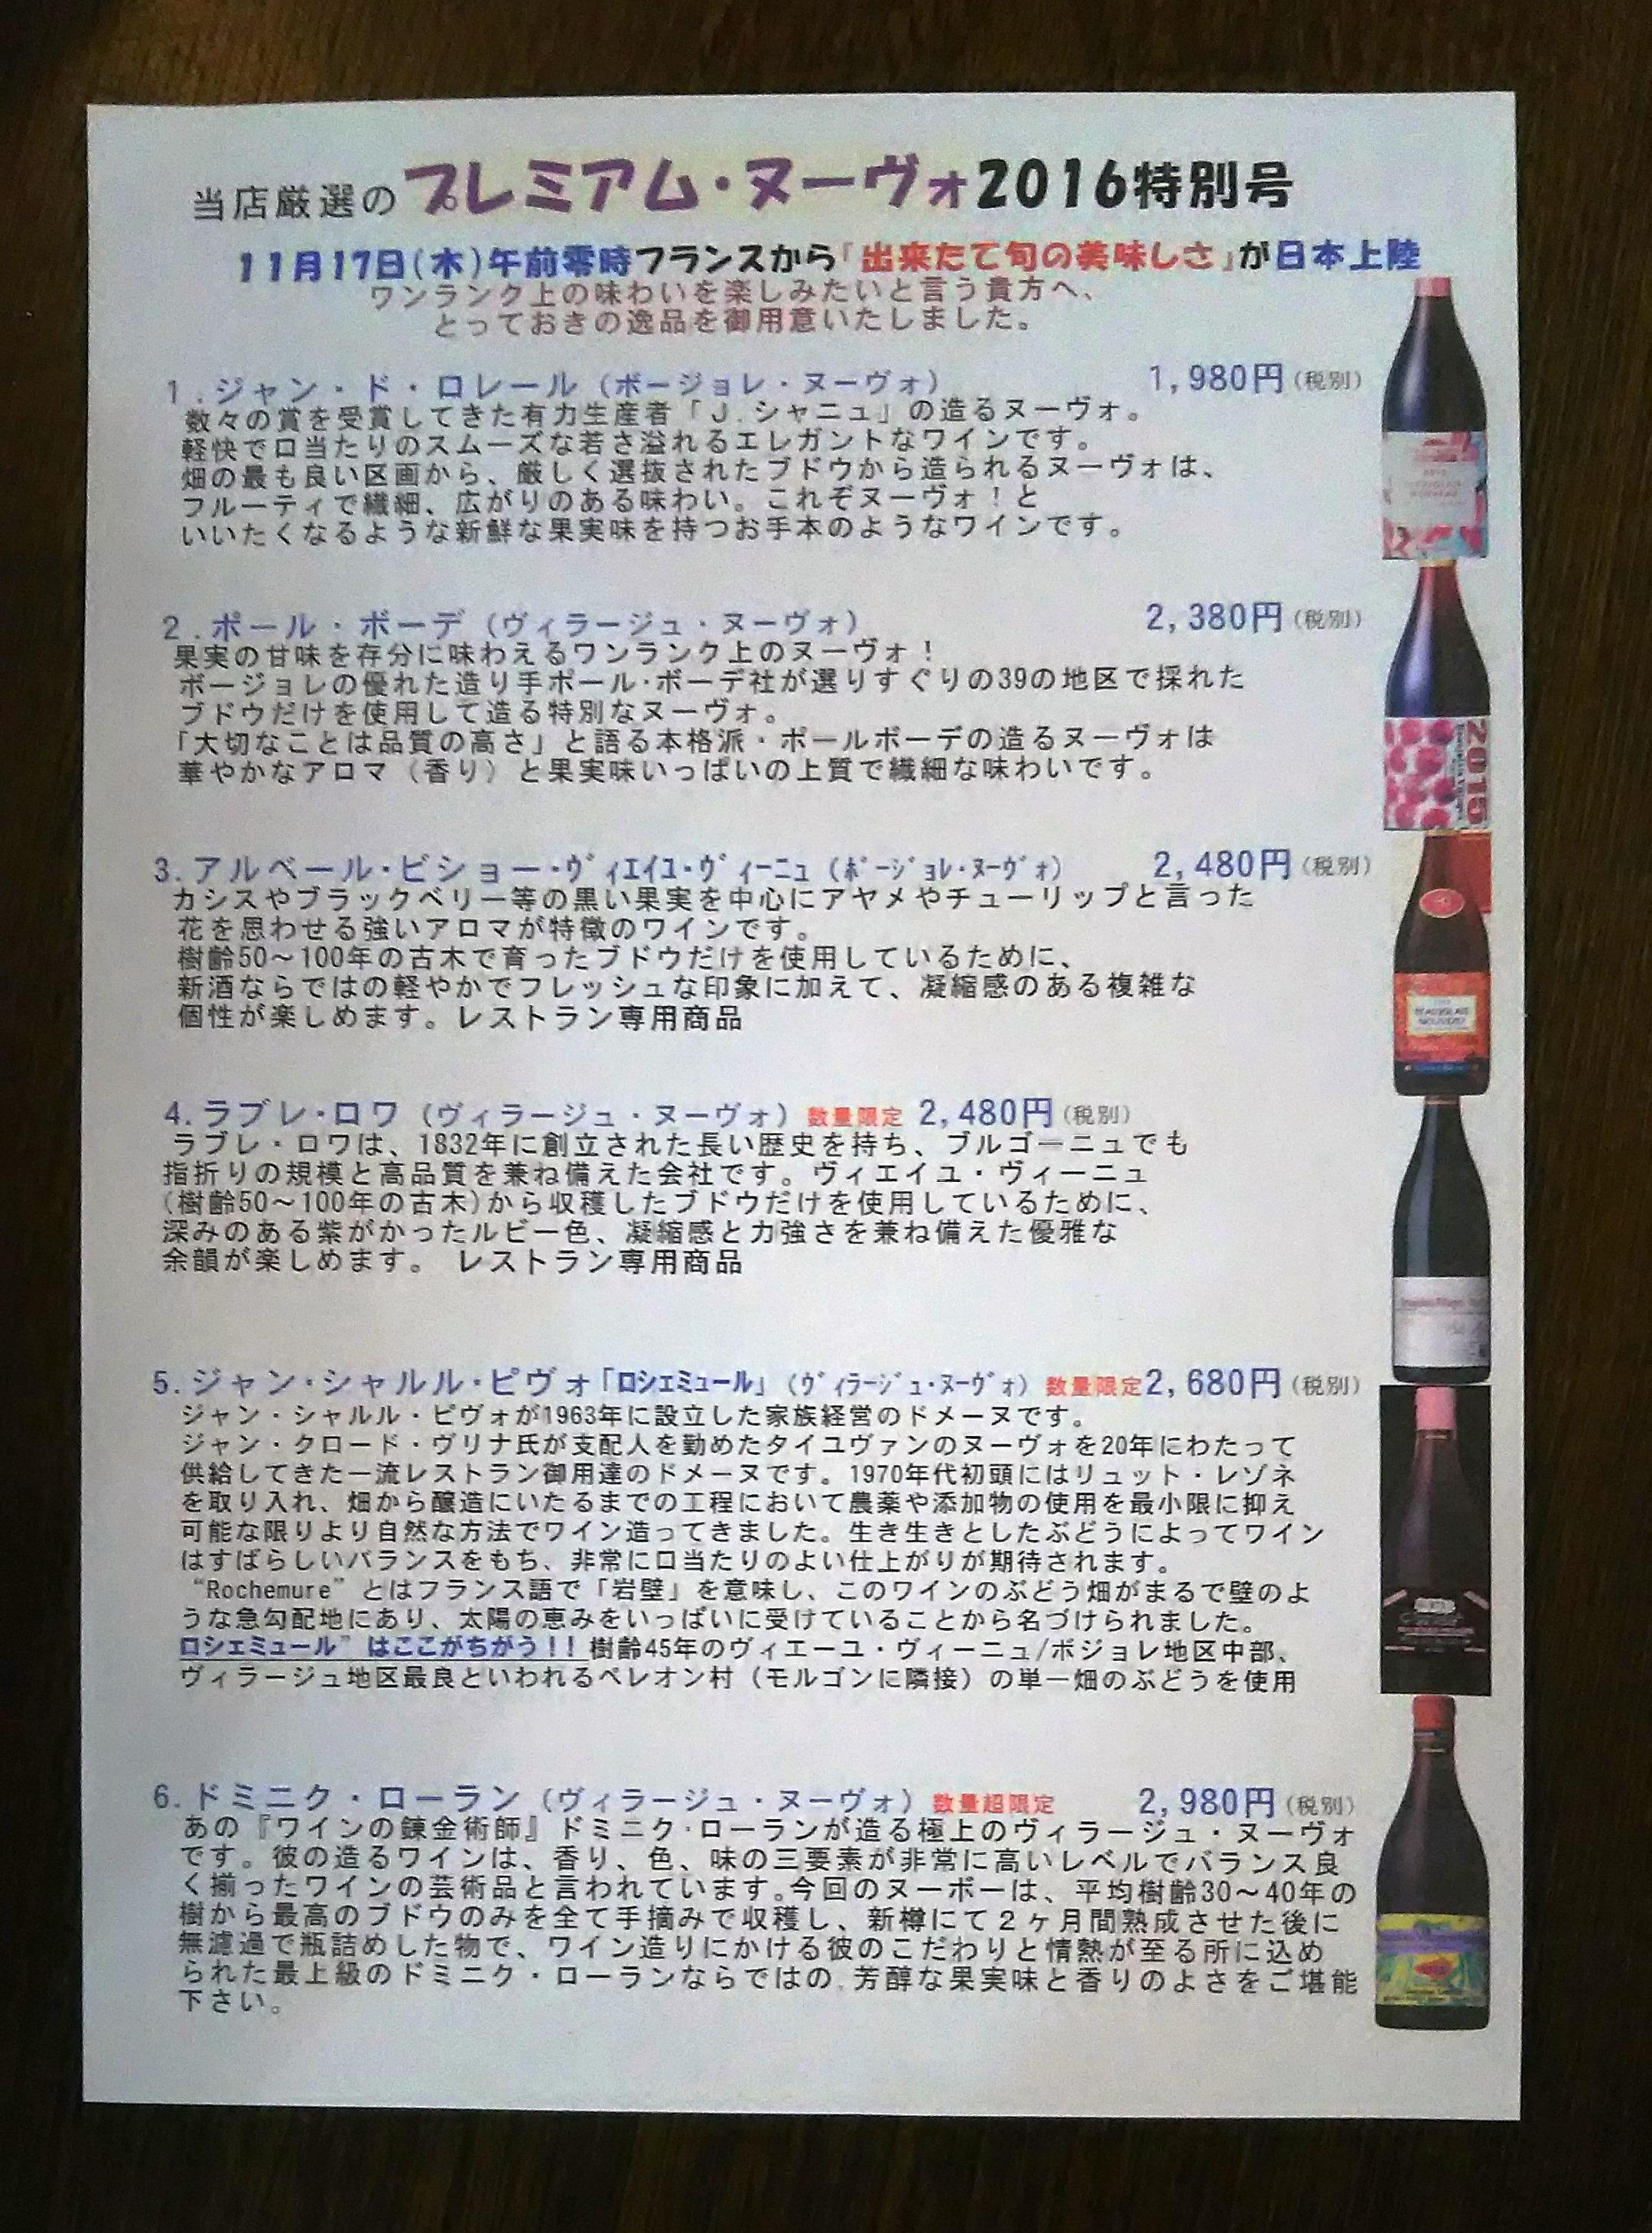 当店厳選のプレミアム・ヌーヴォ2016特別号
11月17日(木)午前零時フランスから「出来たて旬の美味しさ」が日本上陸
ワンランク上の味わいを楽しみたいと言う貴方へ、
とっておきの逸品を御用意いたしました。
1.ジャン・ド・ロレール（ボージョレ・ヌーヴォ） 1,980円（税別）
数々の賞を受賞してきた有力生産者「J.シャニュ」の造るヌーヴォ。
軽快で口当たりのスムーズな若さ溢れるエレガントなワインです。
畑の最も良い区画から、厳しく選抜されたブドウから造られるヌーヴォは、
フルーティで繊細、広がりのある味わい。これぞヌーヴォ！と
いいたくなるような新鮮な果実味を持つお手本のようなワインです。
2.ポール・ボーデ（ヴィラージュ・ヌーヴォ） 2,380円（税別）
果実の甘味を存分に味わえるワンランク上のヌーヴォ！
ボージョレの優れた造り手ポール・ボーデ社が選りすぐりの39の地区で採れた
ブドウだけを使用して造る特別なヌーヴォ。
「大切なことは品質の高さ」と語る本格派・ポールボーデの造るヌーヴォは
華やかなアロマ（香り）と果実味いっぱいの上質で繊細な味わいです。
2015
3.アルベール・ビショー・ｳﾞｨｴｲﾕ・ｳﾞｨｰﾆｭ（ﾎﾞｰｼﾞｮﾚ・ﾇｰｳﾞｫ） 2,480円（税別）
カシスやブラックベリー等の黒い果実を中心にアヤメやチューリップと言った
花を思わせる強いアロマが特徴のワインです。
樹齢50〜100年の古木で育ったブドウだけを使用しているために、
新酒ならではの軽やかでフレッシュな印象に加えて、凝縮感のある複雑な
個性が楽しめます。レストラン専用商品
BEAUJOLAIS
NOUVEAU
4.ラブレ・ロワ（ヴィラージュ・ヌーヴォ）数量限定 2,480円（税別）
ラブレ・ロワは、1832年に創立された長い歴史を持ち、ブルゴーニュでも
指折りの規模と高品質を兼ね備えた会社です。ヴィエイユ・ヴィーニュ
(樹齢50〜100年の古木)から収穫したブドウだけを使用しているために、
深みのある紫がかったルビー色、凝縮感と力強さを兼ね備えた優雅な
余韻が楽しめます。 レストラン専用商品
5.ジャン・シャルル・ピヴォ「ロシェミュール」（ｳﾞｨﾗｰｼﾞｭ・ﾇｰｳﾞｫ）数量限定2,680円（税別）
ジャン・シャルル・ピヴォが1963年に設立した家族経営のドメーヌです。
ジャン・クロード・ヴリナ氏が支配人を勤めたタイユヴァンのヌーヴォを20年にわたって
供給してきた一流レストラン御用達のドメーヌです。1970年代初頭にはリュット・レゾネ
を取り入れ、畑から醸造にいたるまでの工程において農薬や添加物の使用を最小限に抑え
可能な限りより自然な方法でワイン造ってきました。生き生きとしたぶどうによってワイン
はすばらしいバランスをもち、非常に口当たりのよい仕上がりが期待されます。
“Rochemure”とはフランス語で「岩壁」を意味し、このワインのぶどう畑がまるで壁のよ
うな急勾配地にあり、太陽の恵みをいっぱいに受けていることから名づけられました。
ロシェミュール”はここがちがう！！樹齢45年のヴィエーユ・ヴィーニュ/ボジョレ地区中部、
ヴィラージュ地区最良といわれるペレオン村（モルゴンに隣接）の単一畑のぶどうを使用
6.ドミニク・ローラン（ヴィラージュ・ヌーヴォ）数量超限定 2,980円（税別）
あの『ワインの錬金術師』ドミニク・ローランが造る極上のヴィラージュ・ヌーヴォ
です。彼の造るワインは、香り、色、味の三要素が非常に高いレベルでバランス良
く揃ったワインの芸術品と言われています。今回のヌーボーは、平均樹齢30〜40年の
樹から最高のブドウのみを全て手摘みで収穫し、新樽にて２ヶ月間熟成させた後に
無濾過で瓶詰めした物で、ワイン造りにかける彼のこだわりと情熱が至る所に込め
られた最上級のドミニク・ローランならではの、芳醇な果実味と香りのよさをご堪能
下さい。